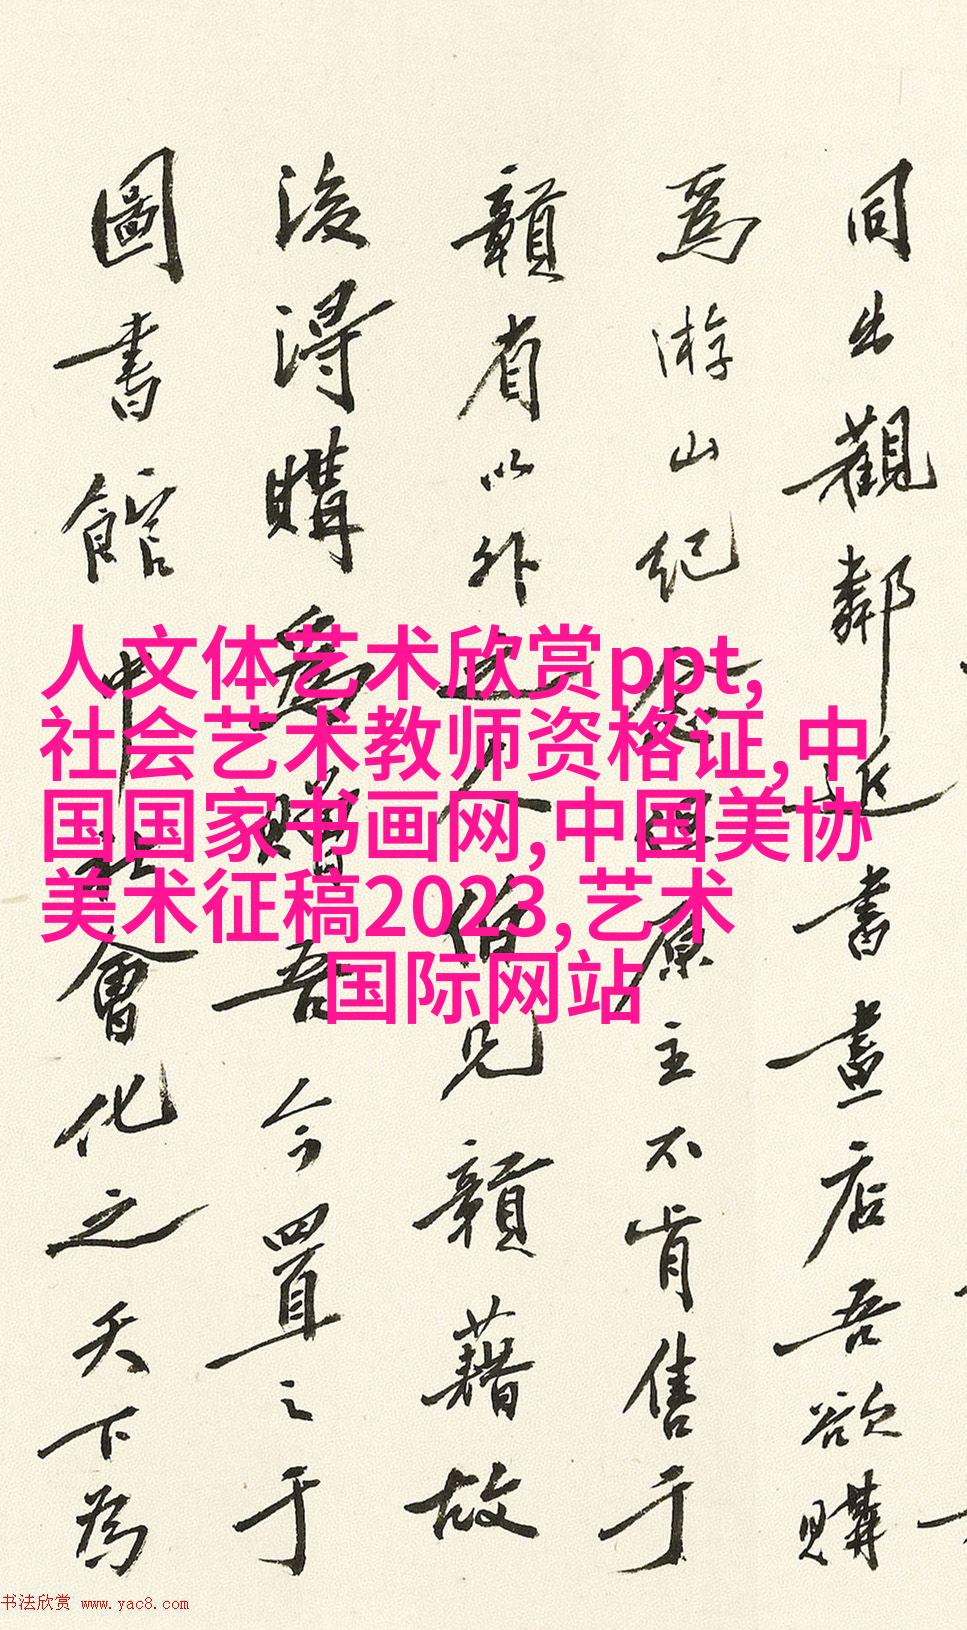 同出觀鄰近書畫店吾欲購
為游山紀念原主不肯售于
贛省以外之人伯兄贛藉故
後得購為贈吾今置之于
圖書館中會化之天下為
人文体艺术欣赏ppt,
社会艺术教师资格证,中
国国家书画网,中国美协
美术征稿2023,艺术
国际网站
书法欣赏 www.yac8.com